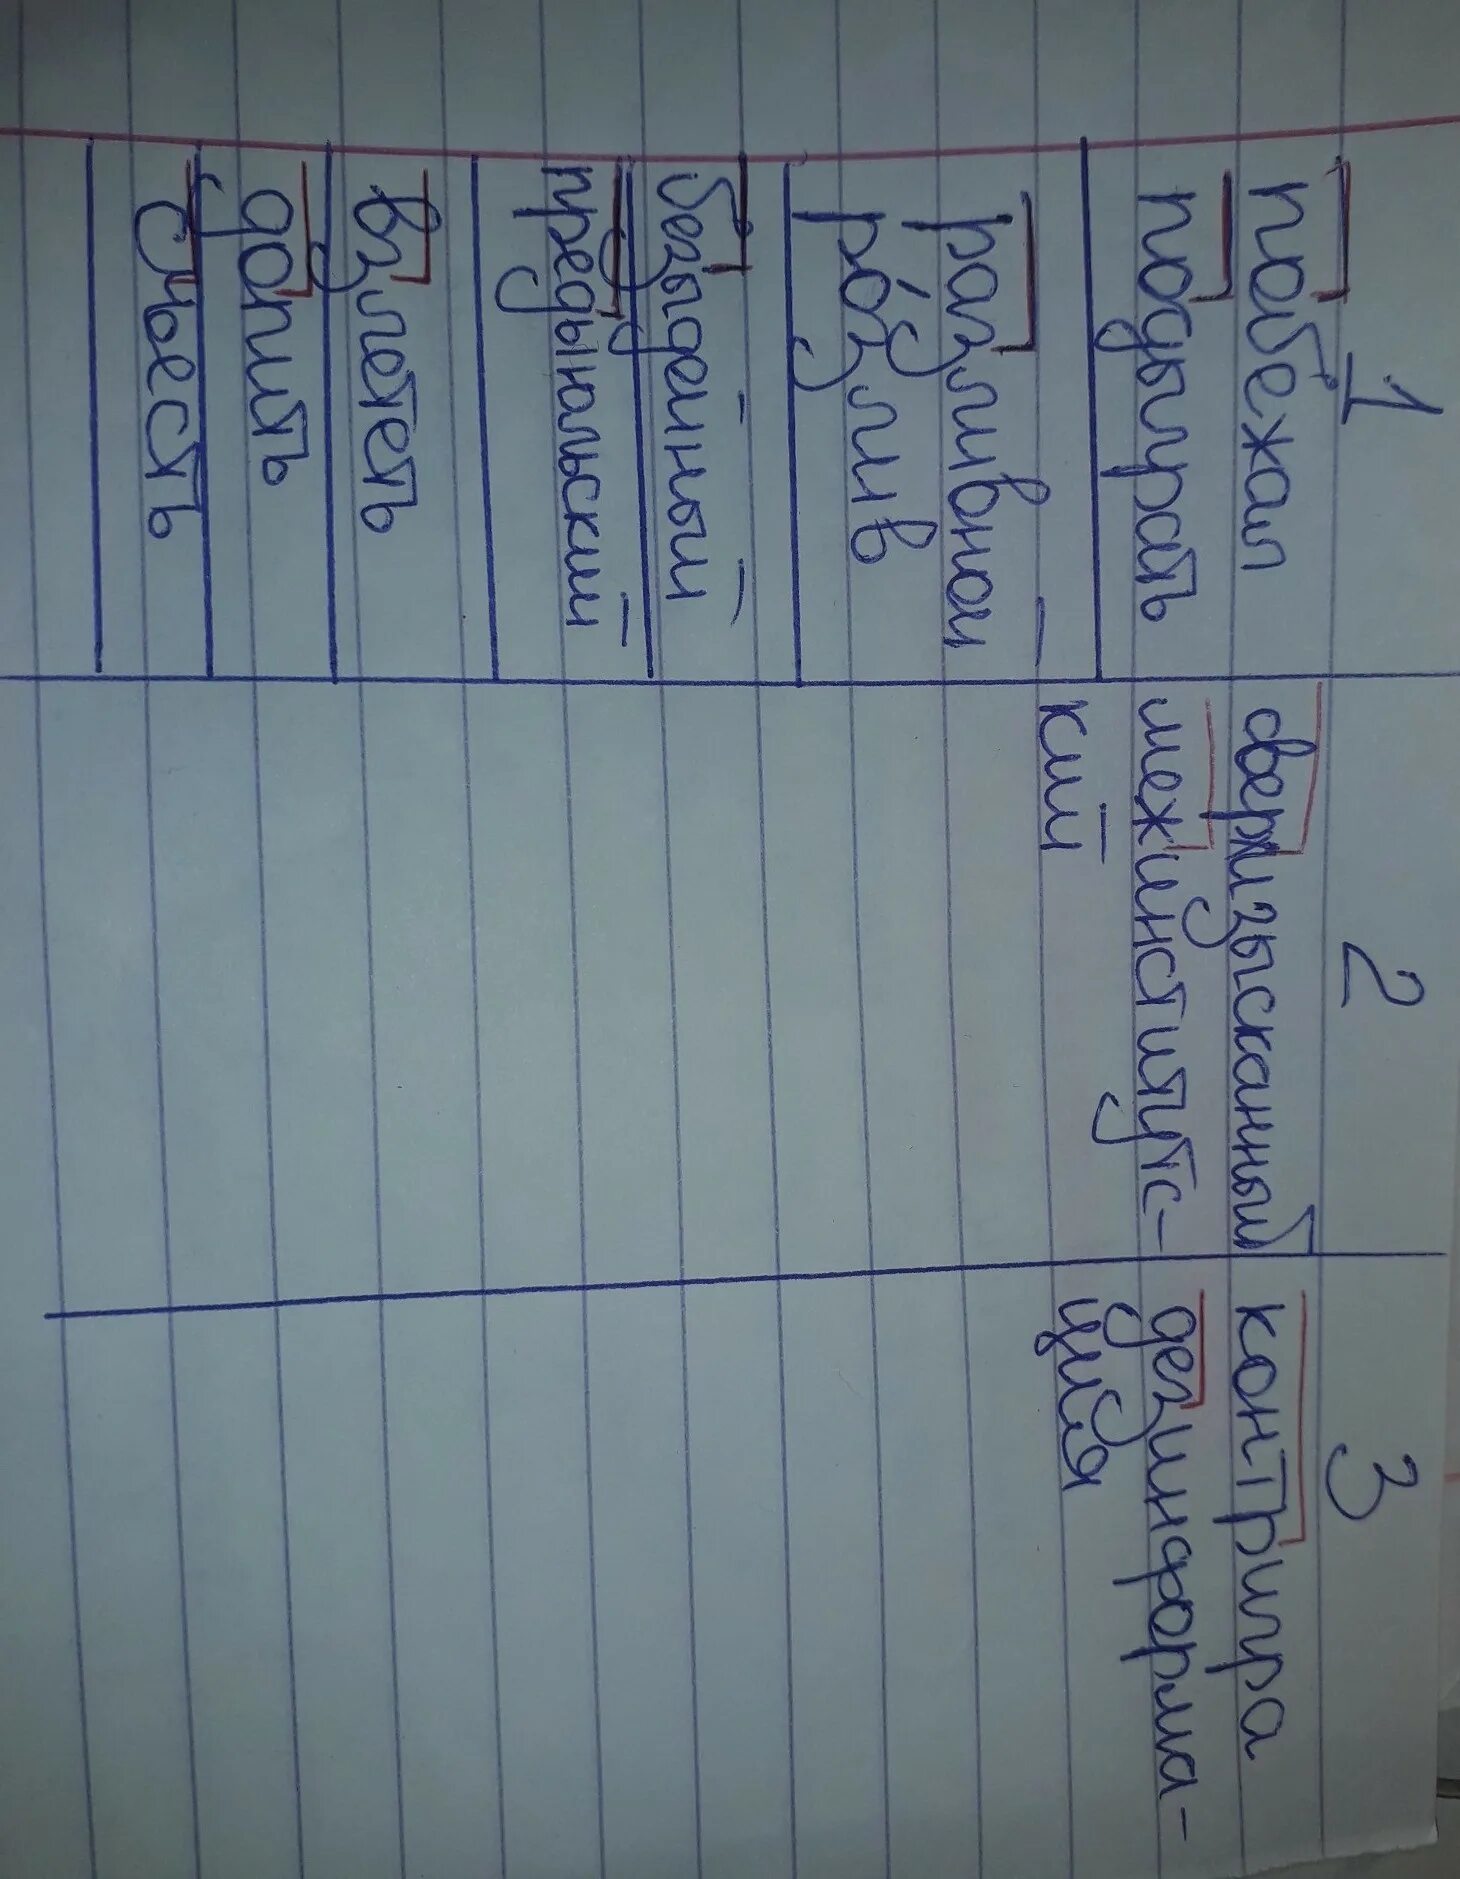 1 2 3
побежал сверхизысканный контригра
подыграть межинститутс- дезинформа-
кий ция
разливной
ро́злив
безыдейный
предыюльский
взлететь
допить
съесть